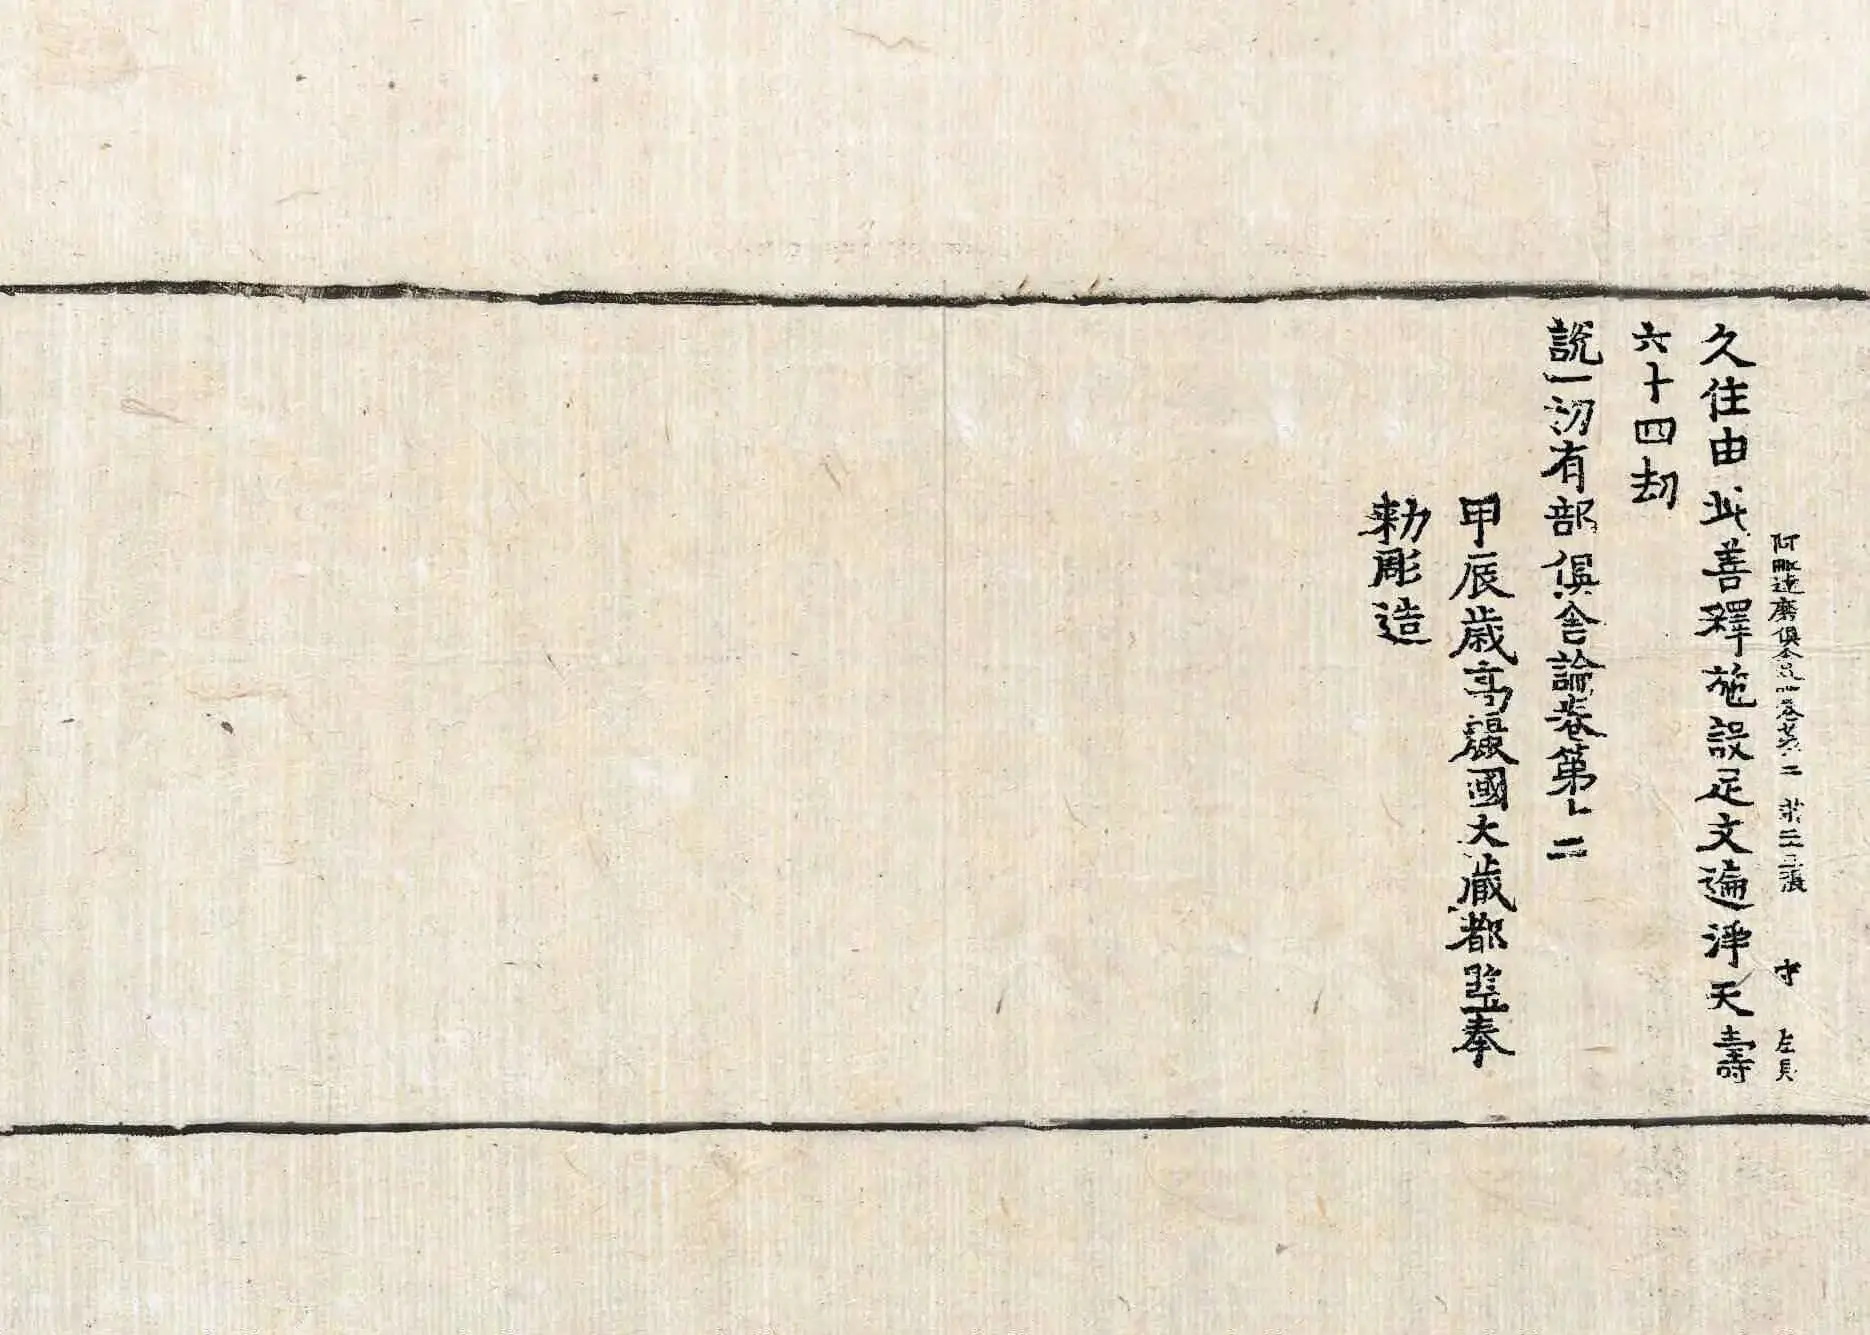 阿毗達磨俱舍論卷第二 第二三張 守 左貝
久住由此善釋施設足文遍淨天壽
六十四劫
說一切有部俱舍論卷第二
甲辰歲高麗國大藏都監奉
勅彫造